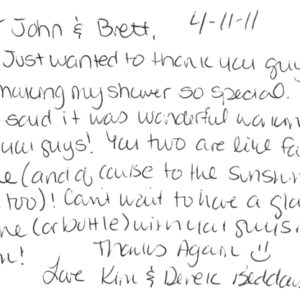 John & Brett, 4-11-11
Just wanted to thank you guy
making my shower so special.
said it was wonderful
you guys! You two are like fa
(and of course to the sunshin
too)! Can't wait to have a gla
(or bottle) with you guys
Thanks Again
Love Kim & Derek